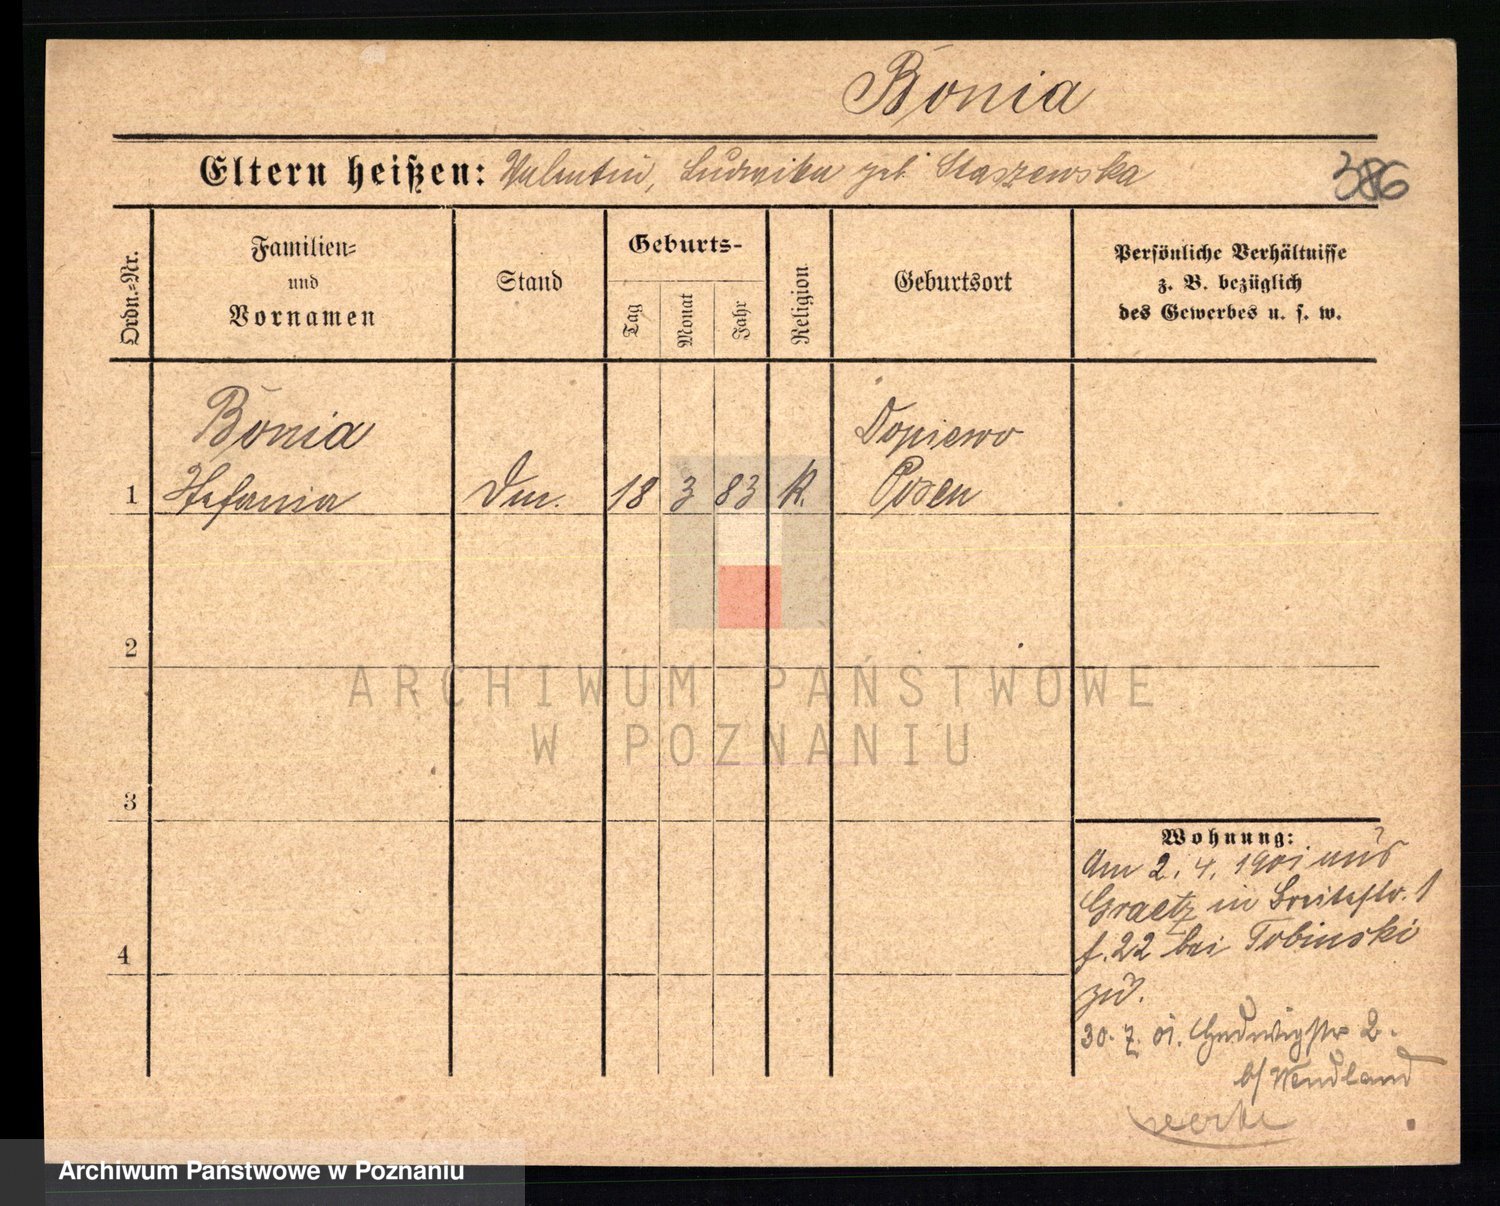 Bonia
Eltern heißen: Valentin, Ludwika geb. Staszewska
386
Ordn.-Nr.
Familien-
und
Vornamen
Stand
Geburts-
Tag
Monat
Jahr
Religion
Geburtsort
Persönliche Verhältnisse
z. B. bezüglich
des Gewerbes u. s. w.
Bonia
Stefania
1
18 3 83 K.
Dopiewo
Posen
2
3
4
Wohnung:
Am 2. 4. 1901 aus
Graetz in Breitestr. 1
f. 22 bei Tobinski
zu.
30. 7. 01. Hedwigstr 2.
b/ Wendland
ARCHIWUM PAŃSTWOWE
W POZNANIU
Archiwum Państwowe w Poznaniu